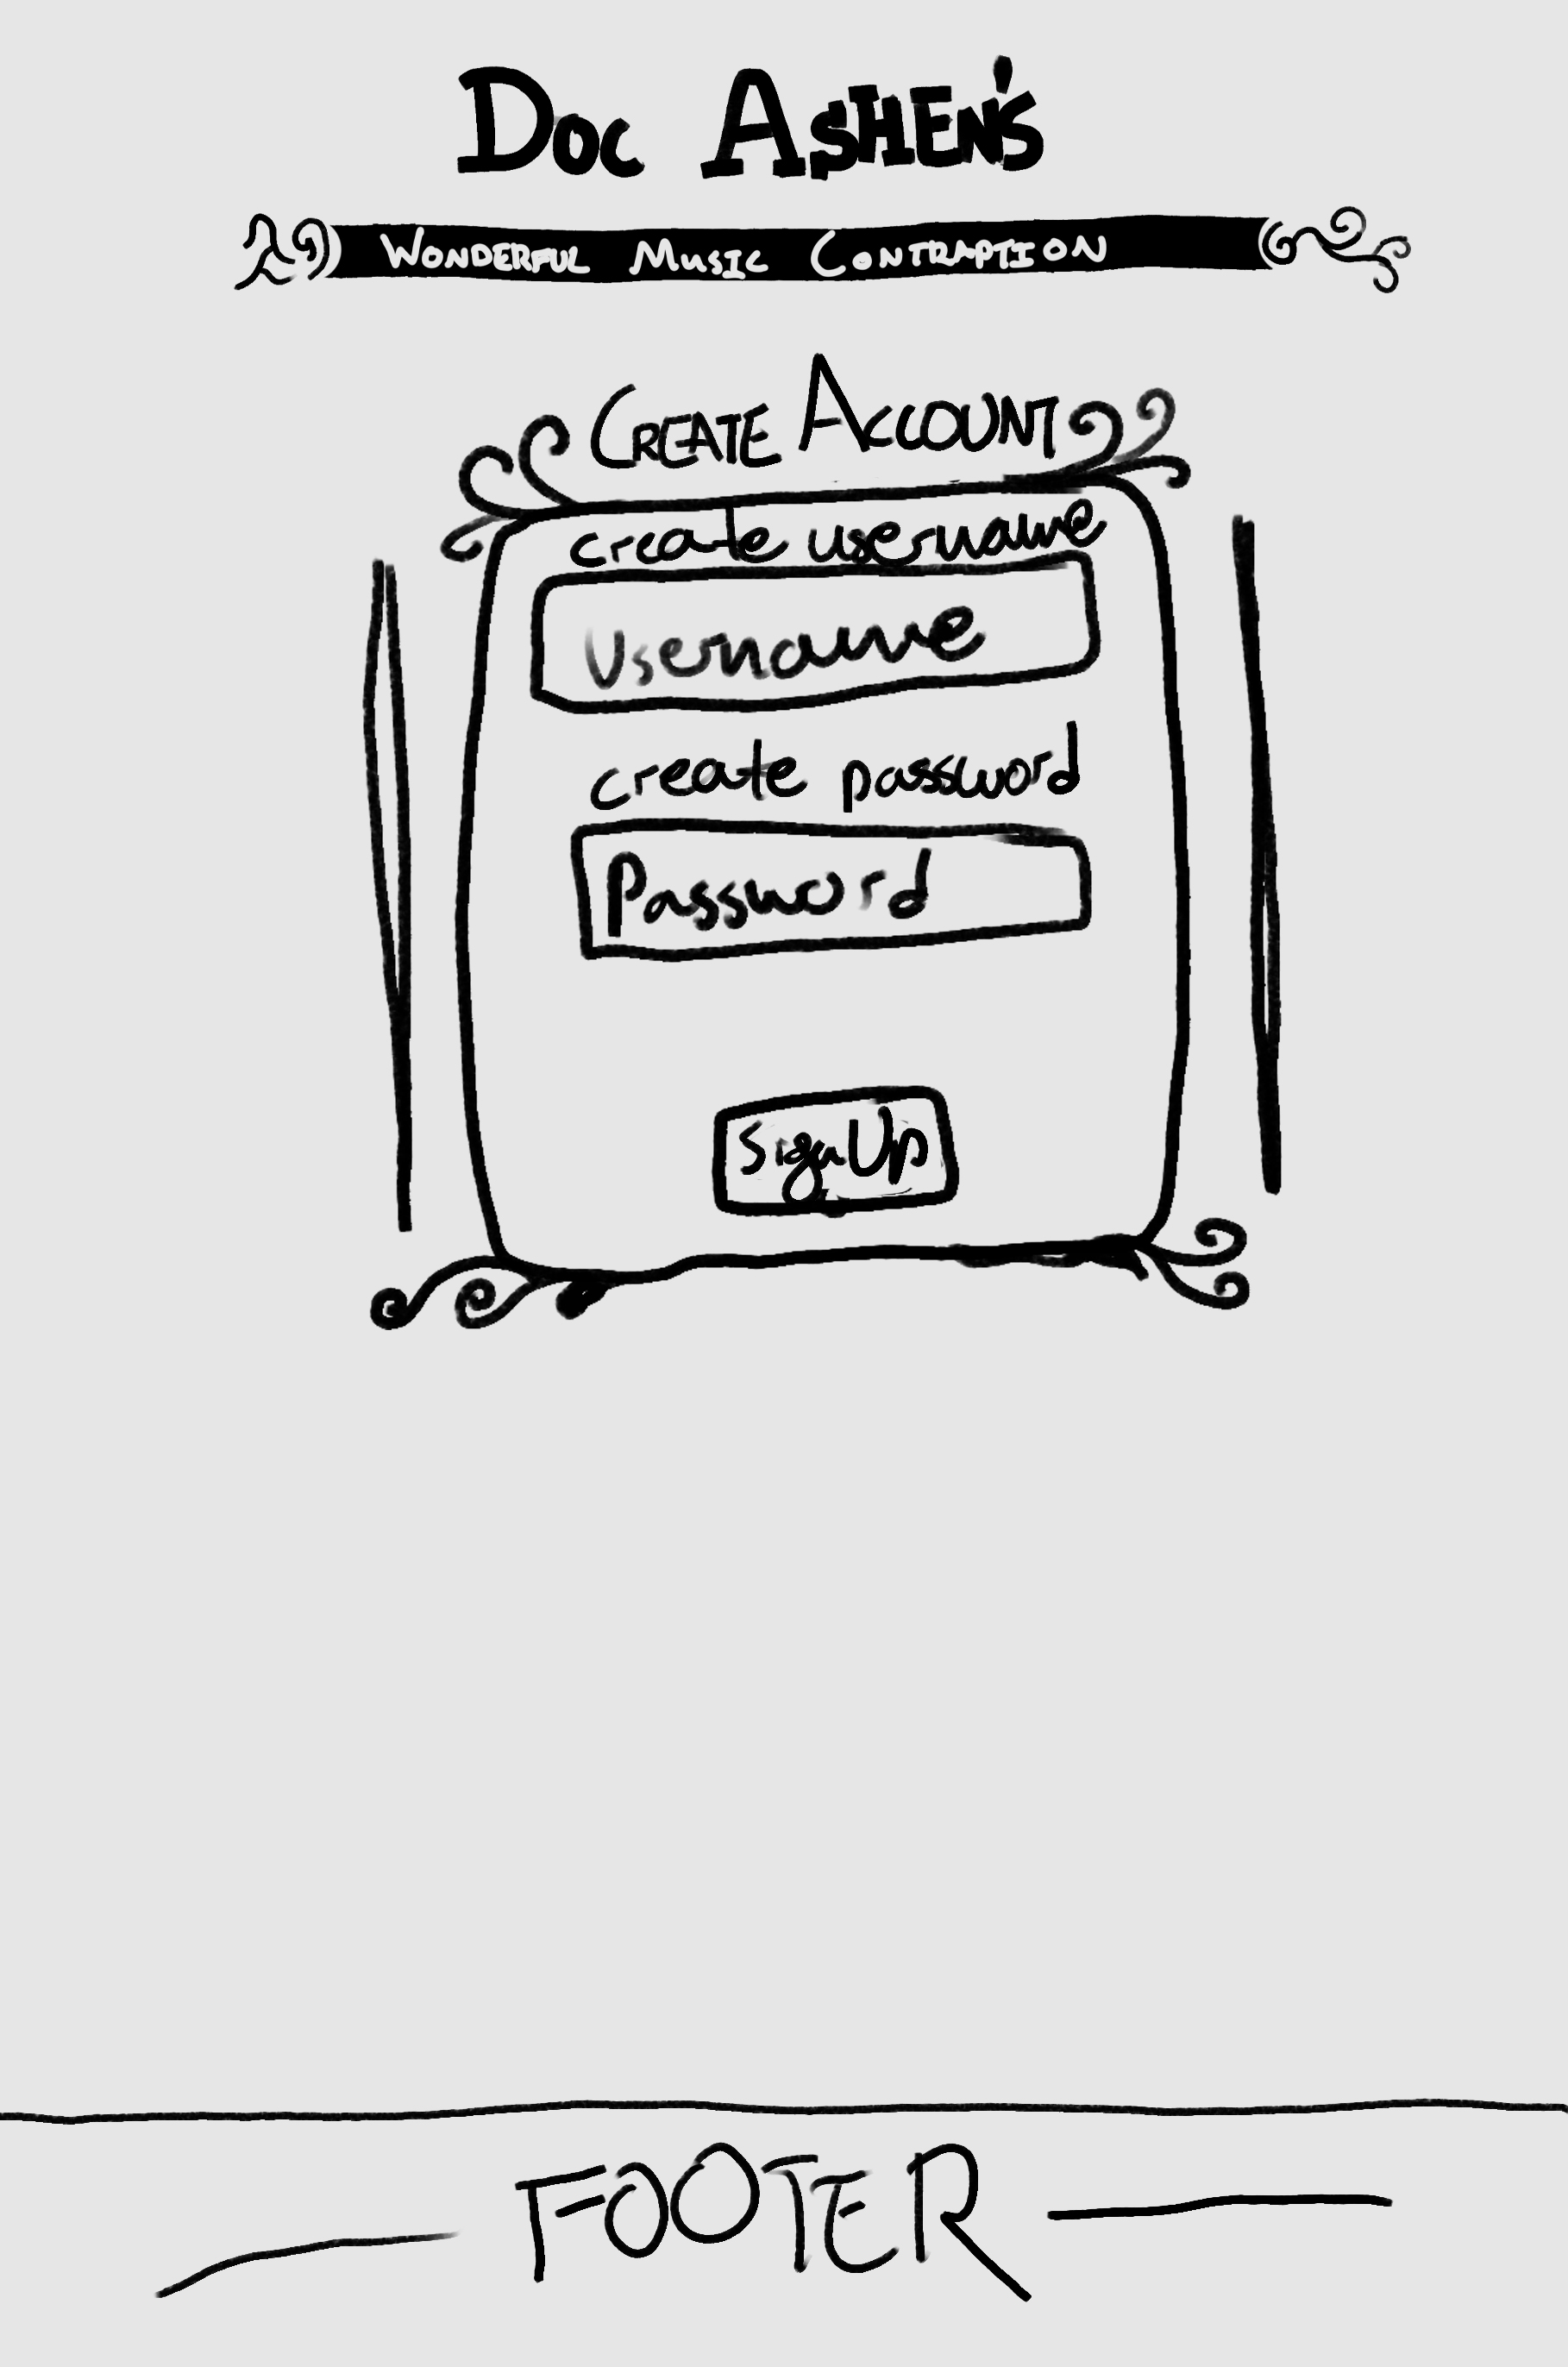 Doc ASHEN'S
WONDERFUL MUSIC CONTRAPTION
CREATE ACCOUNT
create username
Username
create password
Password
Sign Up
FOOTER